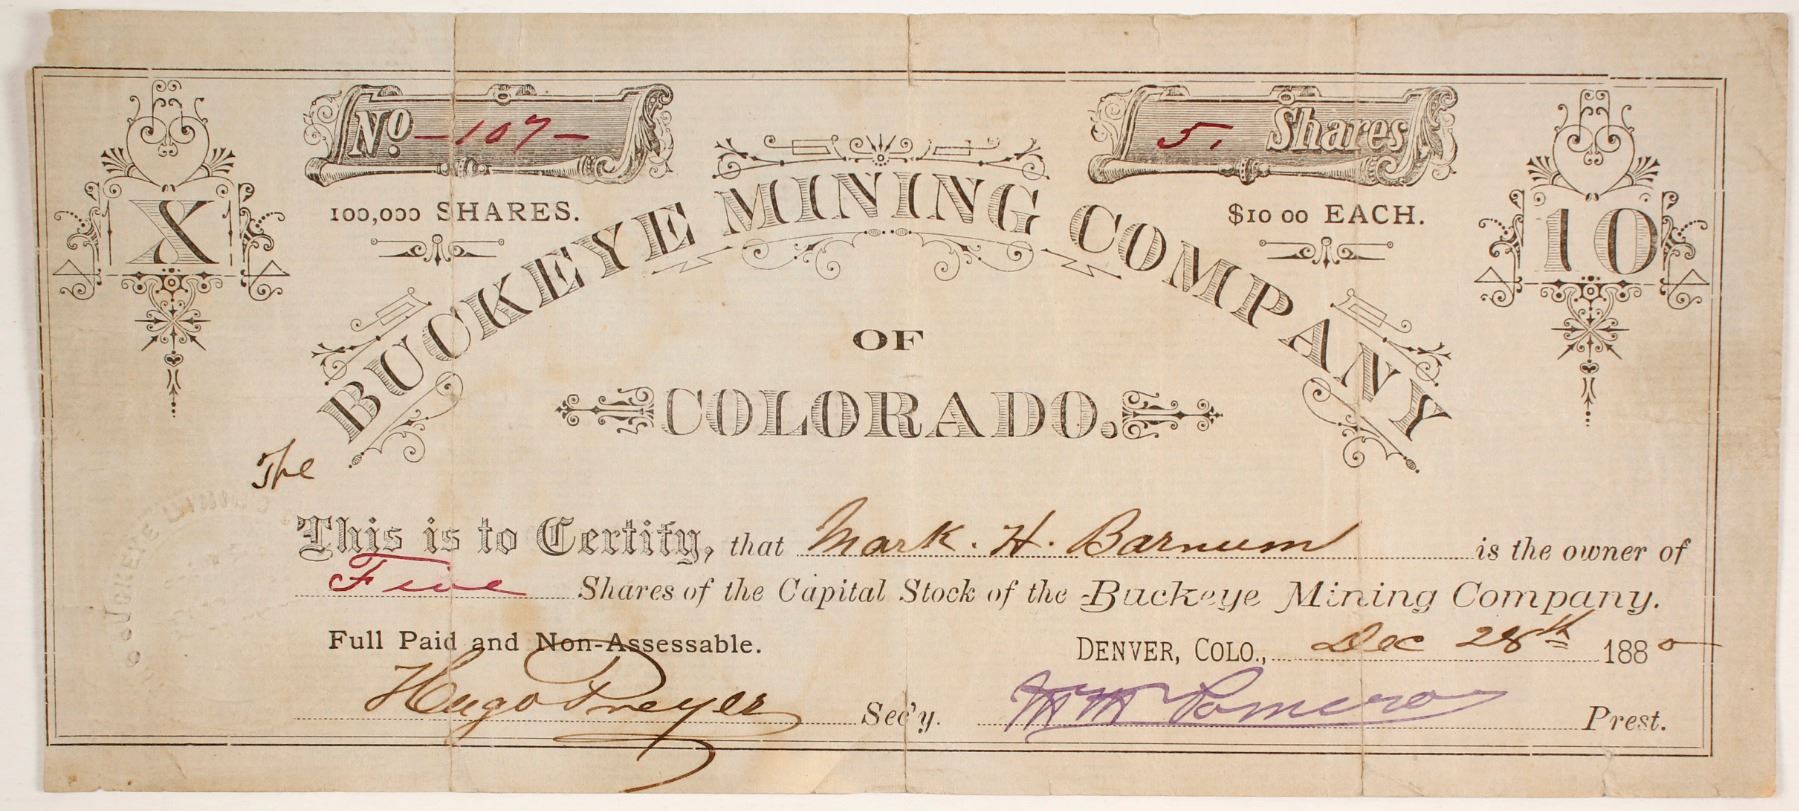 No. - 107 -
5, Shares
X
100,000 SHARES.
$10 00 EACH.
10
BUCKEYE MINING COMPANY
OF
COLORADO.
The
This is to Certify, that Mark. H. Barnum is the owner of
Five Shares of the Capital Stock of the Buckeye Mining Company.
Full Paid and Non-Assessable.
DENVER, COLO., Dec 28th 1880
Hugo Preyer Sec'y.
Pomeroy Prest.
BUCKEYE